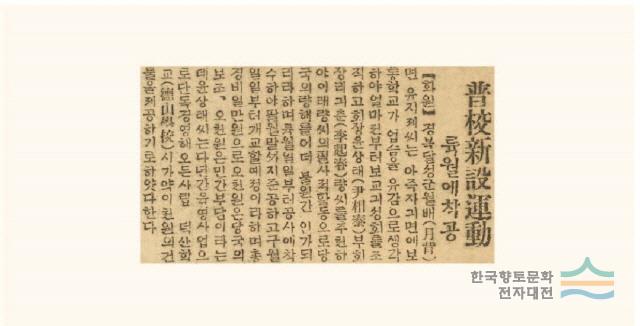 普校新設運動
륙월에 착공
【화원】 경북달성군월배(月背)
면 유지제씨는 아즉자긔면에보
통학교가 업슴을 유감으로생각
하야얼마전부터보교긔성회를조
직하고회장윤상태(尹相泰)부회
장리긔춘(李起春)량씨를추천하
야이래량씨의필사뎍활동으로당
국의량해를어더 불원간 인가되
리라하며륙월일일부터공사에착
수하야팔월말까지준공하고구월
일일부터개교할예정이라하며총
경비일만원으로오천원은당국의
보조、오천원은민간부담이라는
데윤상태씨는다년간육영사업으
로단독경영해오든사립 덕산학
교(德山學校)시가약이천원의건
물을제공하기로하얏다한다
한국향토문화
전자대전